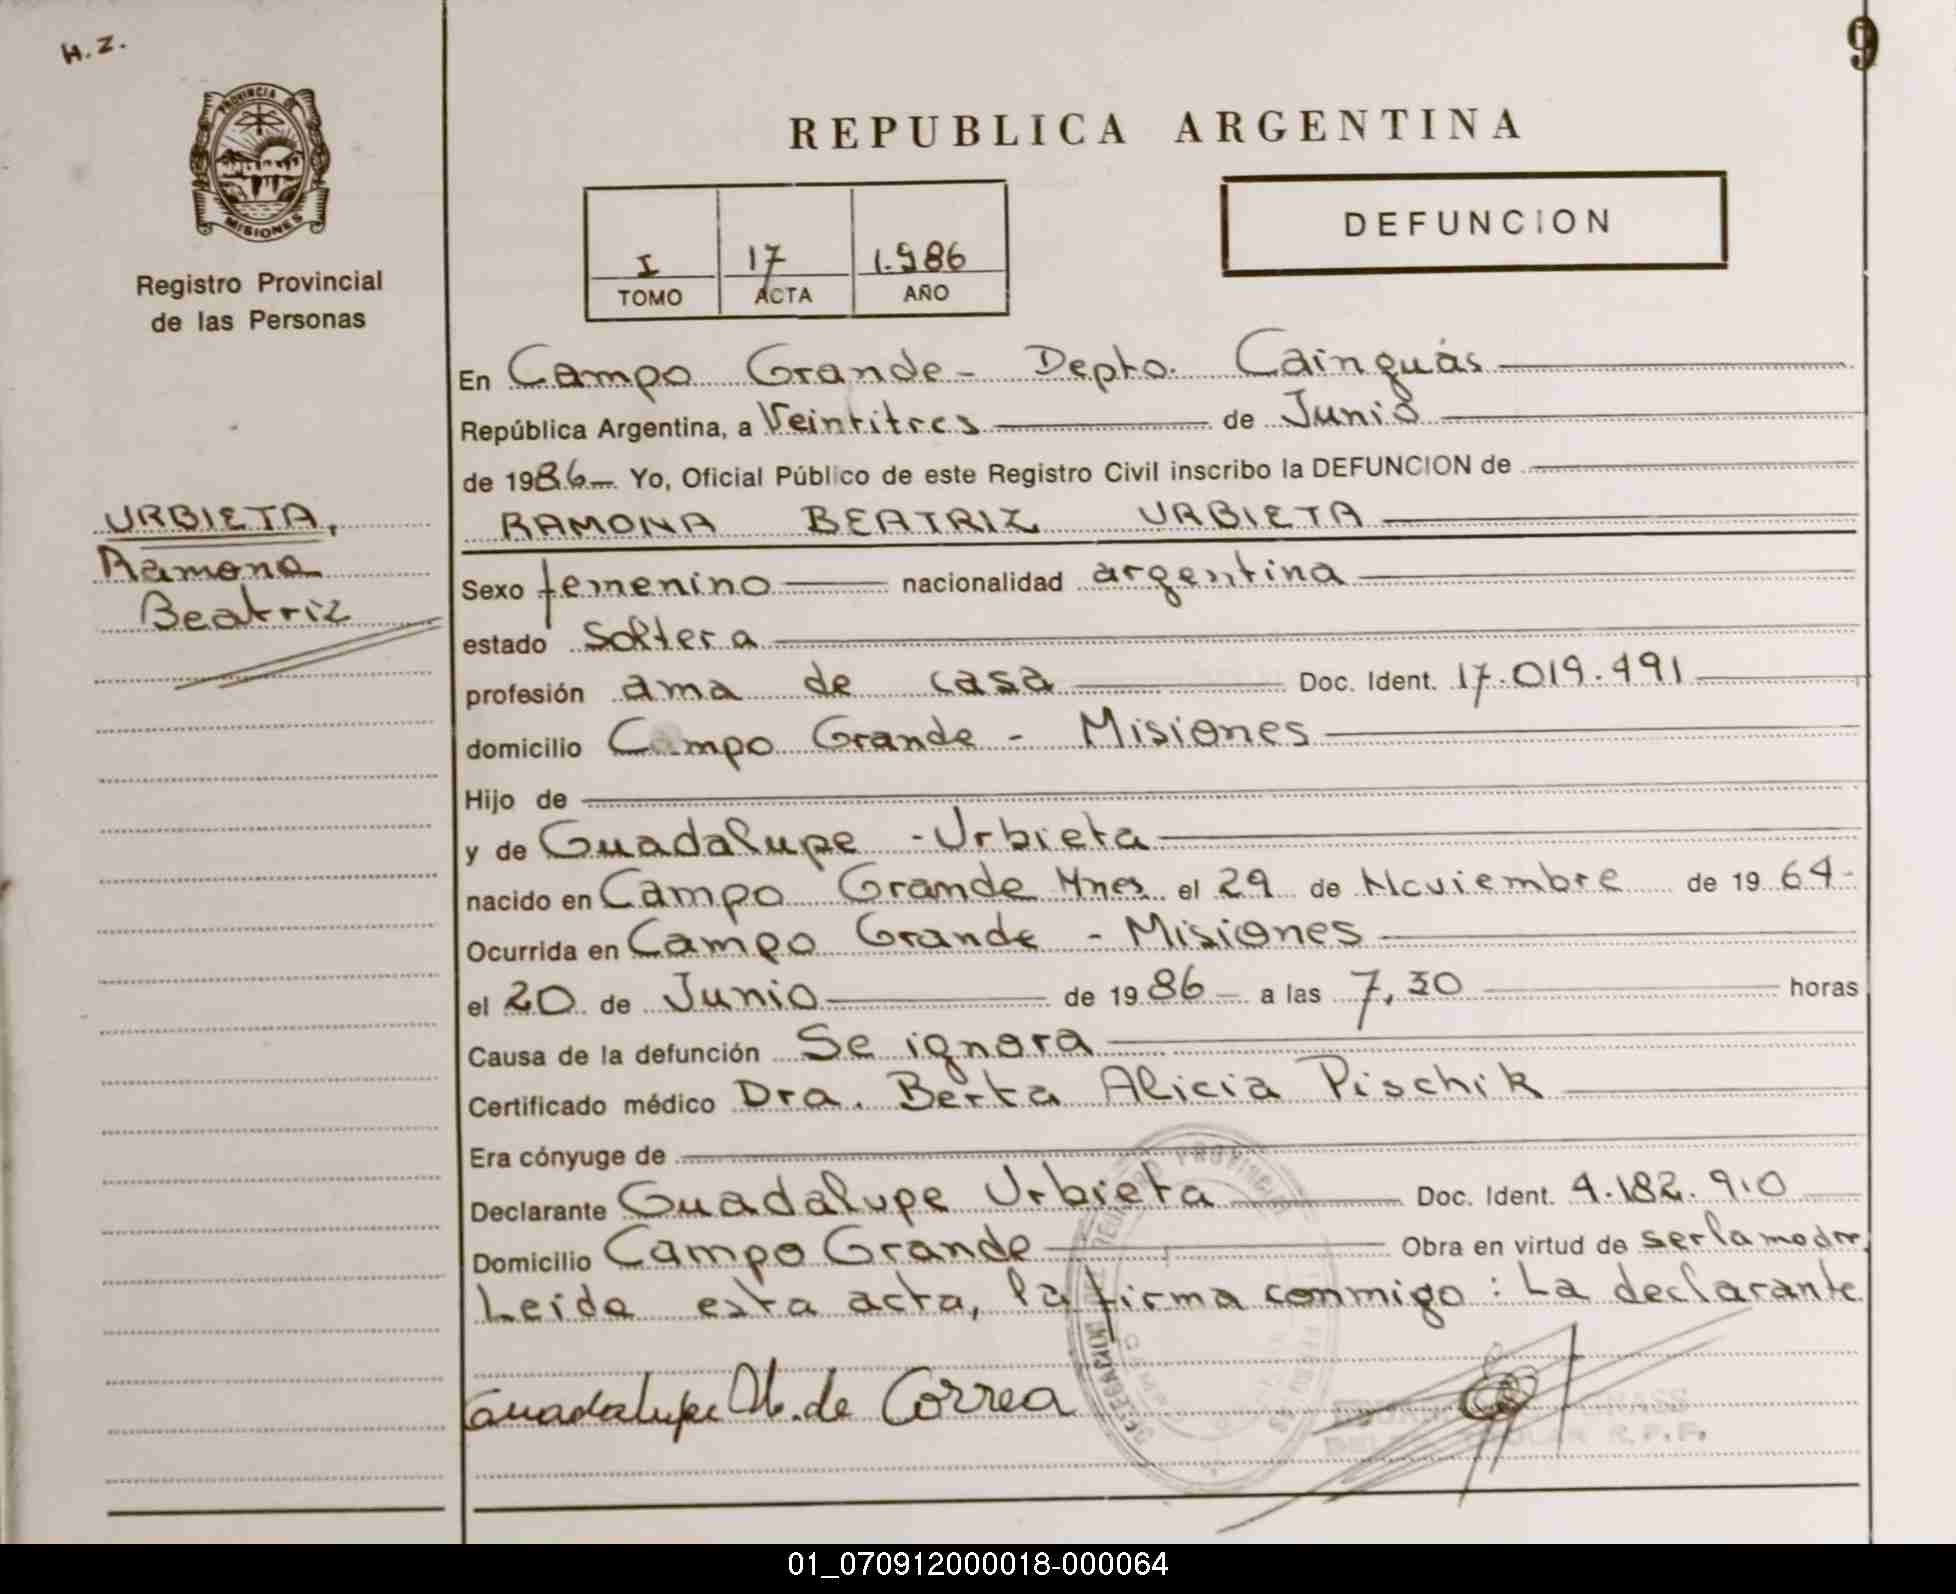 H.Z.
9
PROVINCIA DE
MISIONES
Registro Provincial
de las Personas
REPUBLICA ARGENTINA
I 17 1.986
TOMO ACTA AÑO
DEFUNCION
URBIETA,
Ramona
Beatriz
En Campo Grande - Depto. Cainguás
República Argentina, a Veintitres de Junio
de 1986 Yo, Oficial Público de este Registro Civil inscribo la DEFUNCION de
RAMONA BEATRIZ URBIETA
Sexo femenino nacionalidad argentina
estado Soltera
profesión ama de casa Doc. Ident. 17.019.491
domicilio Campo Grande - Misiones
Hijo de
y de Guadalupe - Urbieta
nacido en Campo Grande Mnes. el 29 de Noviembre de 1964-
Ocurrida en Campo Grande - Misiones
el 20 de Junio de 1986 a las 7,30 horas
Causa de la defunción Se ignora
Certificado médico Dra. Berta Alicia Pischik
Era cónyuge de
Declarante Guadalupe Urbieta Doc. Ident. 4.182.910
Domicilio Campo Grande Obra en virtud de ser la madre
Leida esta acta, la firma conmigo : La declarante
Guadalupe U. de Correa
R.P.P.
01_070912000018-000064